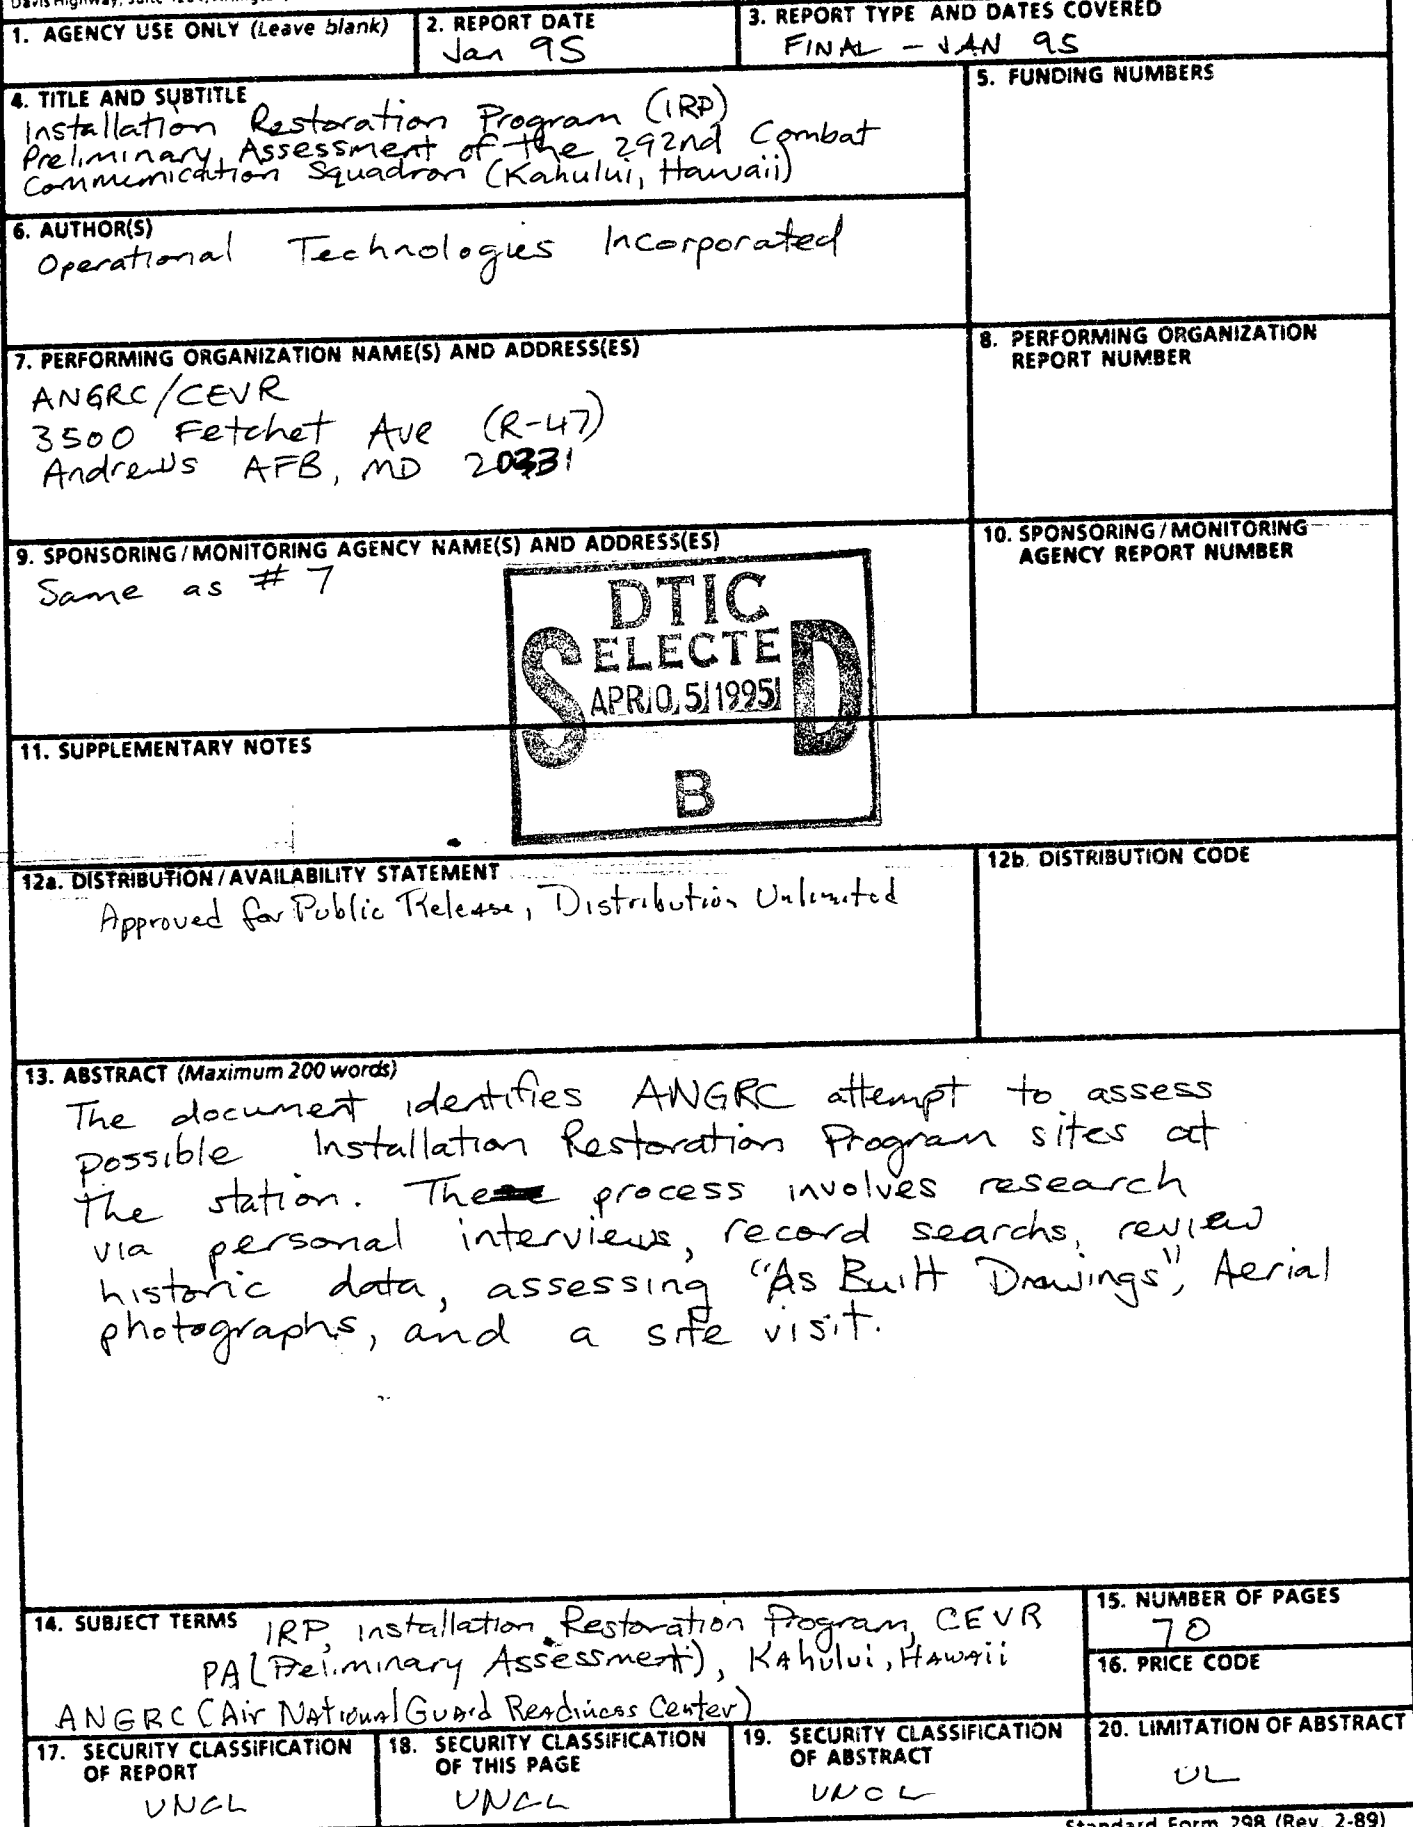 1. AGENCY USE ONLY (Leave blank)
2. REPORT DATE
Jan 95
3. REPORT TYPE AND DATES COVERED
FINAL - JAN 95
4. TITLE AND SUBTITLE
Installation Restoration Program (IRP)
Preliminary Assessment of the 292nd Combat
Communication Squadron (Kahului, Hawaii)
5. FUNDING NUMBERS
6. AUTHOR(S)
Operational Technologies Incorporated
7. PERFORMING ORGANIZATION NAME(S) AND ADDRESS(ES)
ANGRC/CEVR
3500 Fetchet Ave (R-47)
Andrews AFB, MD 20331
8. PERFORMING ORGANIZATION
REPORT NUMBER
9. SPONSORING/MONITORING AGENCY NAME(S) AND ADDRESS(ES)
Same as # 7
10. SPONSORING/MONITORING
AGENCY REPORT NUMBER
DTIC
S ELECTE D
APR 05 1995
B
11. SUPPLEMENTARY NOTES
12a. DISTRIBUTION/AVAILABILITY STATEMENT
Approved for Public Release, Distribution Unlimited
12b. DISTRIBUTION CODE
13. ABSTRACT (Maximum 200 words)
The document identifies ANGRC attempt to assess
possible Installation Restoration Program sites at
the station. The process involves research
via personal interviews, record searchs, review
historic data, assessing "As Built Drawings", Aerial
photographs, and a site visit.
14. SUBJECT TERMS
IRP, installation Restoration Program, CEVR
PA (Preliminary Assessment), Kahului, Hawaii
ANGRC (Air National Guard Readiness Center)
15. NUMBER OF PAGES
70
16. PRICE CODE
17. SECURITY CLASSIFICATION
OF REPORT
UNCL
18. SECURITY CLASSIFICATION
OF THIS PAGE
UNCL
19. SECURITY CLASSIFICATION
OF ABSTRACT
UNCL
20. LIMITATION OF ABSTRACT
UL
Standard Form 298 (Rev. 2-89)